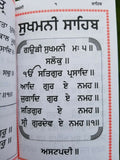 ਸੁਖਮਨੀ ਸਾਹਿਬ
ਗਉੜੀ ਸੁਖਮਨੀ ਮਃ ੫॥
ਸਲੋਕੁ॥
ੴ ਸਤਿਗੁਰ ਪ੍ਰਸਾਦਿ॥
ਆਦਿ ਗੁਰ ਏ ਨਮਹ॥
ਜੁਗਾਦਿ ਗੁਰ ਏ ਨਮਹ॥
ਸਤਿਗੁਰ ਏ ਨਮਹ॥
ਸ੍ਰੀ ਗੁਰਦੇਵ ਏ ਨਮਹ॥੧॥
ਅਸਟਪਦੀ॥